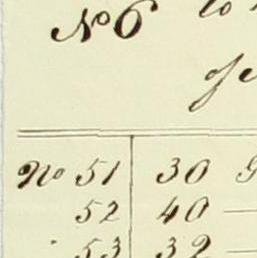 No 6 to
of
No 51 30
52 40 —
53 32 —